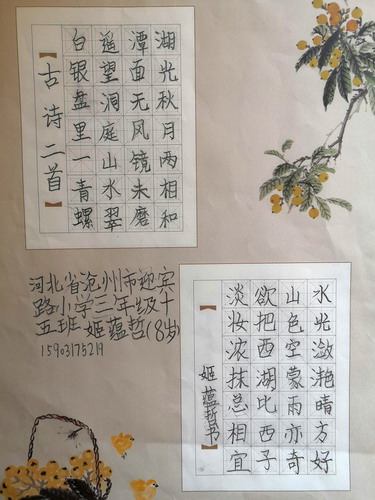 湖光秋月两相和
潭面无风镜未磨
遥望洞庭山水翠
白银盘里一青螺
古诗二首
河北省沧州市迎宾
路小学三年级十
五班 姬蕴哲(8岁)
15903175219
水光潋滟晴方好
山色空蒙雨亦奇
欲把西湖比西子
淡妆浓抹总相宜
姬蕴哲书